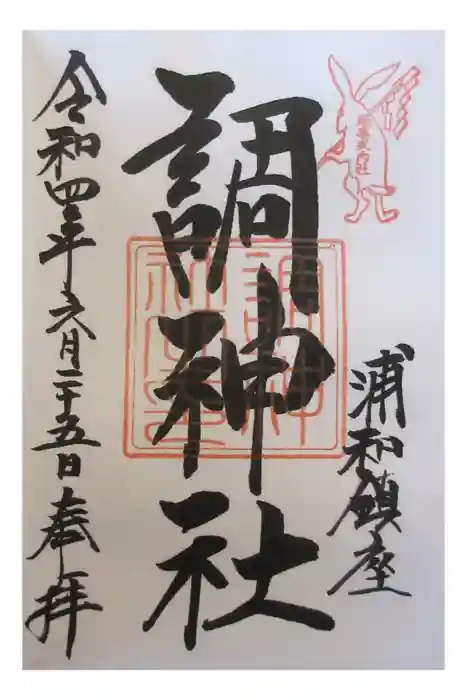 浦和鎮座
調神社
令和四年六月二十五日奉拝